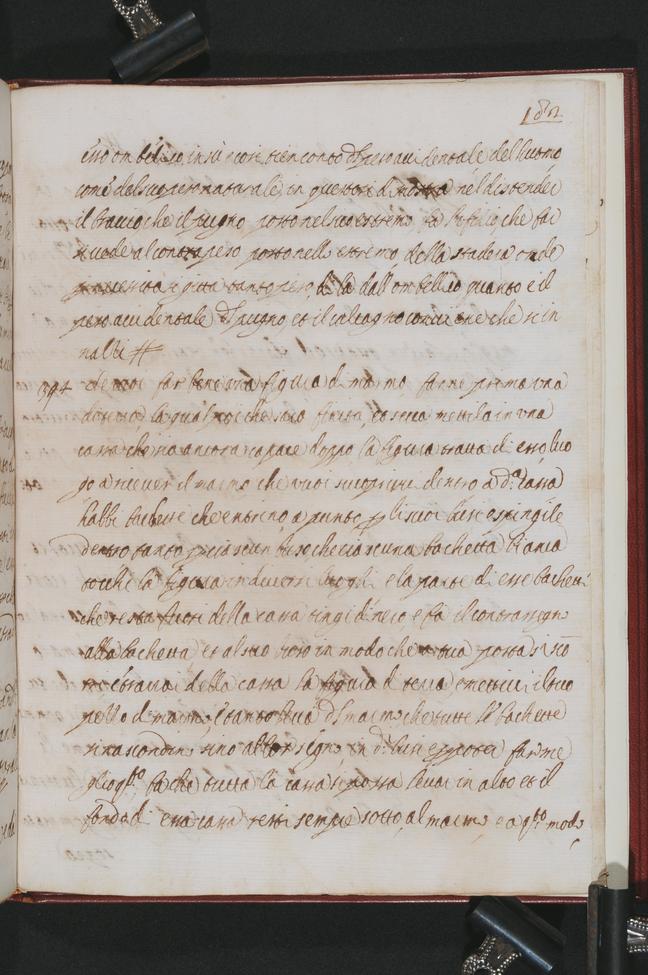 182
esso ombelico in su et cosi tien conto del peso accidentale del huomo
come del suo peso naturale in questo nel distender
il braccio che il pugno posto nel suo estremo fa l'ufitio che far
si vede al contrapeso posto nello estremo della stadera onde
per necessita si gitta tanto peso di là dall ombellico quanto è il
peso accidentale del pugno et il calcagno conviene che si in
nalzi #
394 Se vuoi far bene una figura di marmo, farne prima una
di terra, la qual poi che sarà finita, et secca mettila in una
cassa che sia ancora capace doppo la figura tratta di esso luo
go a ricever il marmo che vuoi scoprirvi dentro a d.ª cassa
habbi bachette che entrino a punto p li suoi busi e spingile
dentro tanto p ciascun buso che ciascuna bachetta bianca
tocchi la figura in diversi luoghi e la parte di esse bachett:
che resta fuori della cassa tingi di nero e fà il contrassegno
alla bachetta et al suo buso in modo che a tua posta si sco
tri e trarrai della cassa la figura di terra e mettivi il tuo
pezzo di marmo, e tanto leva del marmo che tutte le bachette
si nascondino sino al lor segno in d.ⁱ busi e p poter far me
glio q.to fa che tutta la cassa si possa levar in alto et il
fondo di essa cassa resti sempre sotto al marmo, e a q.to modo